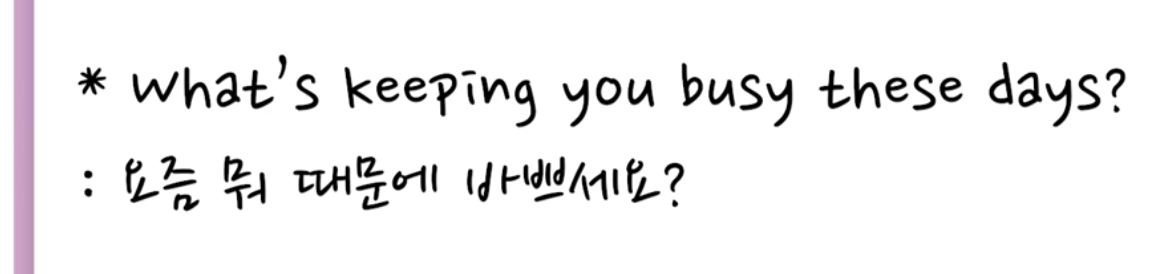 * What's keeping you busy these days?
: 요즘 뭐 때문에 바쁘세요?